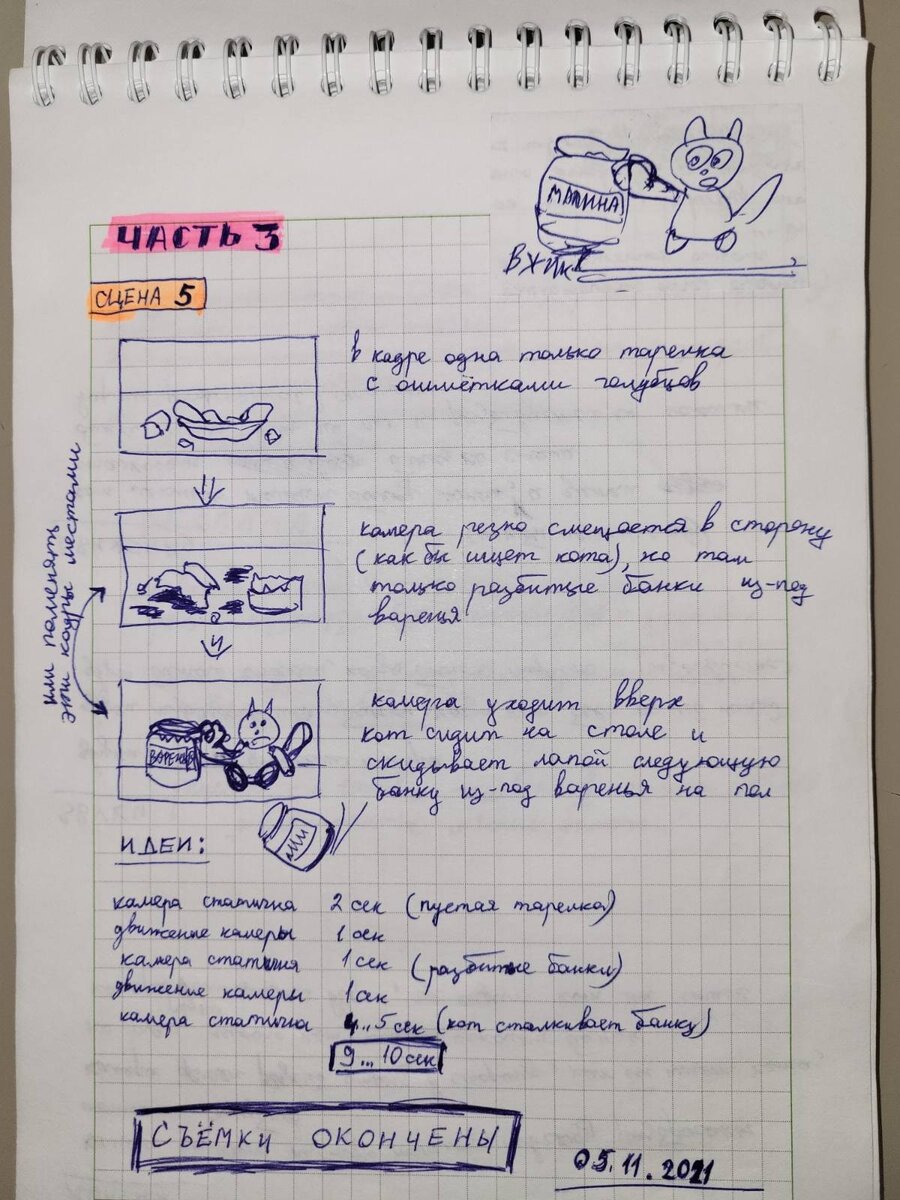 МАЛИНА
ВЖИК
ЧАСТЬ 3
СЦЕНА 5
в кадре одна только тарелка
с ошмётками голубцов
камера резко смещается в сторону
(как бы ищет кота), но там
только разбитые банки из-под
варенья
или поменять
эти кадры местами
камера уходит вверх
кот сидит на столе и
скидывает лапой следующую
банку из-под варенья на пол
ВАРЕНЬЕ
ИДЕИ:
камера статична 2 сек (пустая тарелка)
движение камеры 1 сек
камера статична 1 сек (разбитые банки)
движение камеры 1 сек
камера статична 4..5 сек (кот сталкивает банку)
9...10 сек
СЪЁМКИ ОКОНЧЕНЫ
05.11.2021